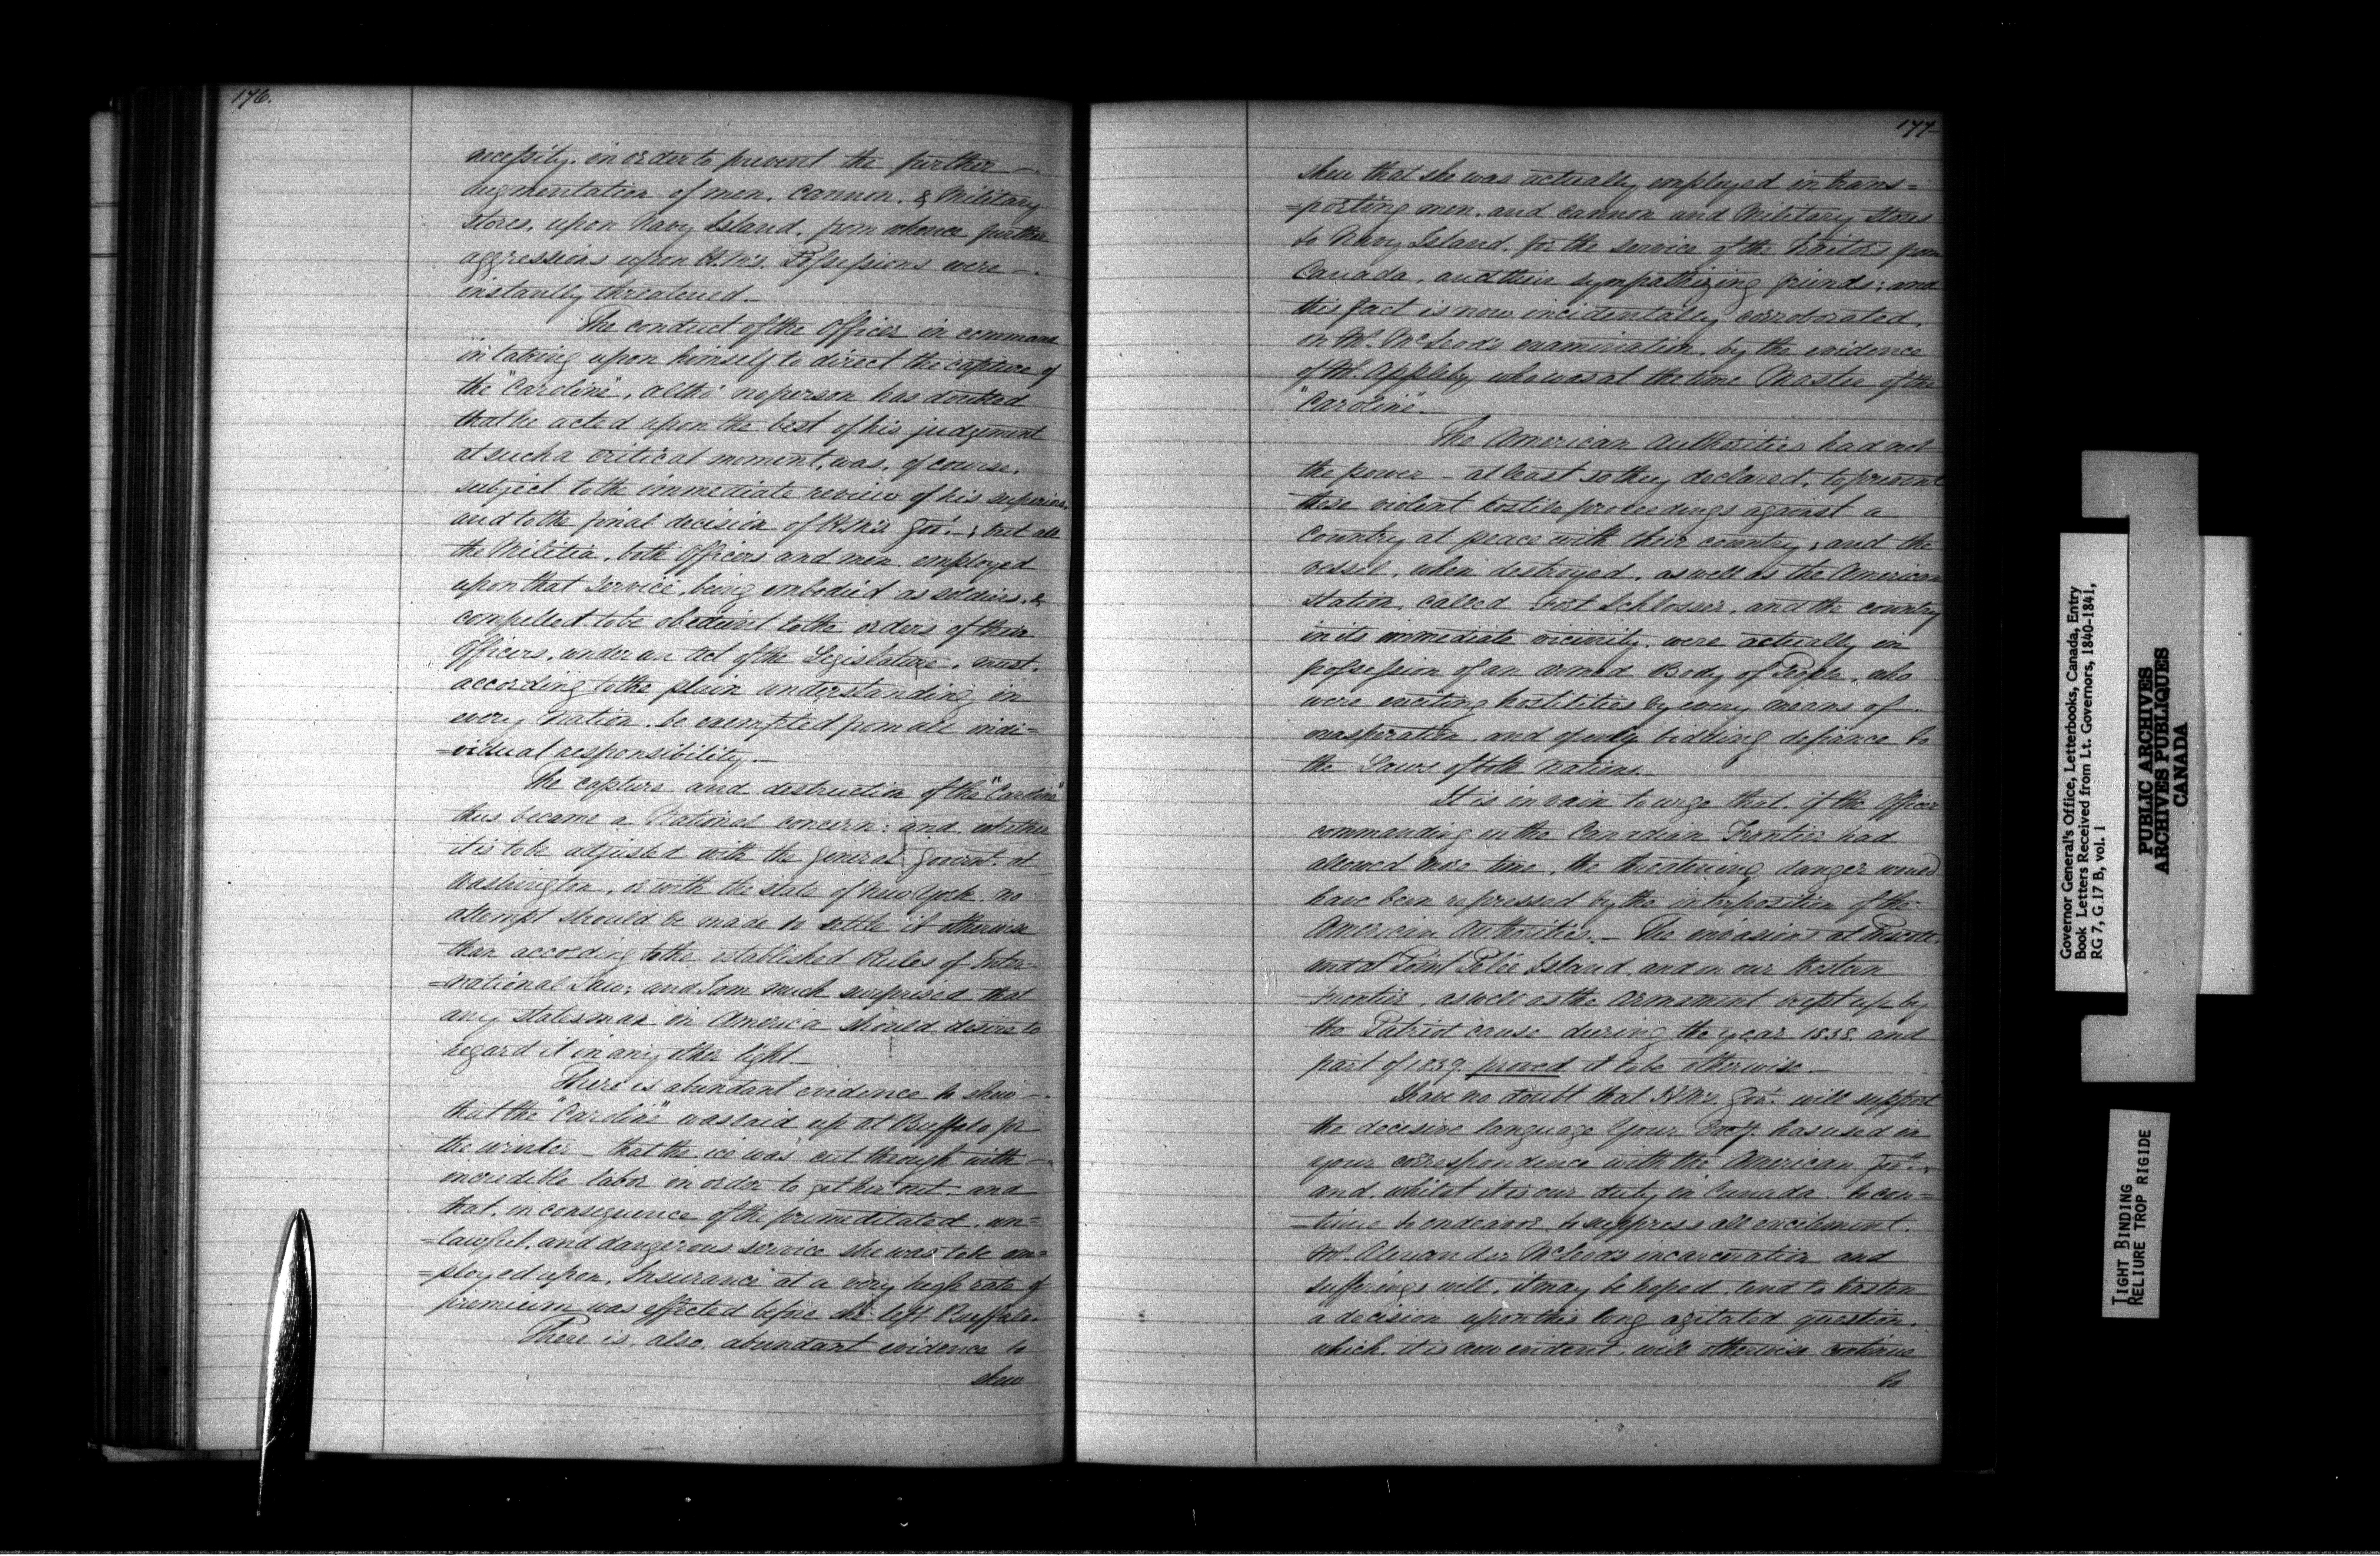 176.
necessity, in order to prevent the further
augmentation of men, cannon, & Military
stores, upon Navy Island, from whence further
aggressions upon H.M's. Possessions were
instantly threatened.
The conduct of the Officer in command
in taking upon himself to direct the capture of
the "Caroline", altho' no person has doubted
that he acted upon the best of his judgement
at such a critical moment, was, of course,
subject to the immediate review of his superiors,
and to the final decision of H.M's Govt.; but all
the Militia, both Officers and men, employed
upon that Service, being embodied as soldiers, &
compelled to be obedient to the orders of their
Officers, under an Act of the Legislature, must,
according to the plain understanding in
every Nation, be exempted from all indi=
=vidual responsibility.
The capture and destruction of the "Caroline"
thus became a National concern: and whether
it is to be adjusted with the General Governt. at
Washington, or with the state of New York, no
attempt should be made to settle it otherwise
than according to the established Rules of Inter=
=national Law; and I am much surprised that
any statesman in America should desire to
regard it in any other light.
There is abundant evidence to shew
that the "Caroline" was laid up at Buffalo for
the winter - that the ice was cut through with
incredible labor in order to get her out, and
that, in consequence of the premeditated, un=
=lawful, and dangerous service she was to be em=
=ployed upon, Insurance at a very high rate of
premium was effected before she left Buffalo.
There is, also, abundant evidence to
shew
177
shew that she was actually employed in trans=
=porting men, and cannon and Military Stores
to Navy Island, for the service of the Traitors from
Canada, and their sympathizing friends; and
this fact is now incidentally corroborated,
on Mr. McLeod's examination, by the evidence
of Mr. Appleby, who was at the time Master of the
"Caroline".
The American Authorities had not
the power - at least so they declared, to prevent
these violent hostile proceedings against a
Country at peace with their country; and the
vessel, when destroyed, as well as the American
station, called Fort Schlosser, and the country
in its immediate vicinity, were actually in
possession of an armed Body of People, who
were exciting hostilities by every means of
exasperation, and openly bidding defiance to
the Laws of both Nations.
It is in vain to urge that, if the Officer
commanding on the Canadian Frontier had
allowed more time, the threatening danger would
have been repressed by the interposition of the
American Authorities. - The invasions at Prescott,
and at Point Pelée Island, and on our Western
Frontier, as well as the armament kept up by
the Patriot cause during the year 1838, and
part of 1839, proved it to be otherwise.
I have no doubt that H.M's. Govt. will support
the decisive language Your Excy. has used in
your correspondence with the American Govt.;
and whilst it is our duty in Canada to con=
=tinue to endeavor to suppress all excitement,
Mr. Alexander McLeod's incarceration and
sufferings will, it may be hoped, tend to hasten
a decision upon this long agitated question,
which, it is now evident, will otherwise continue
to
Governor General's Office, Letterbooks, Canada, Entry
Book Letters Received from Lt. Governors, 1840-1841,
RG 7, G.17 B, vol. 1
PUBLIC ARCHIVES
ARCHIVES PUBLIQUES
CANADA
TIGHT BINDING
RELIURE TROP RIGIDE